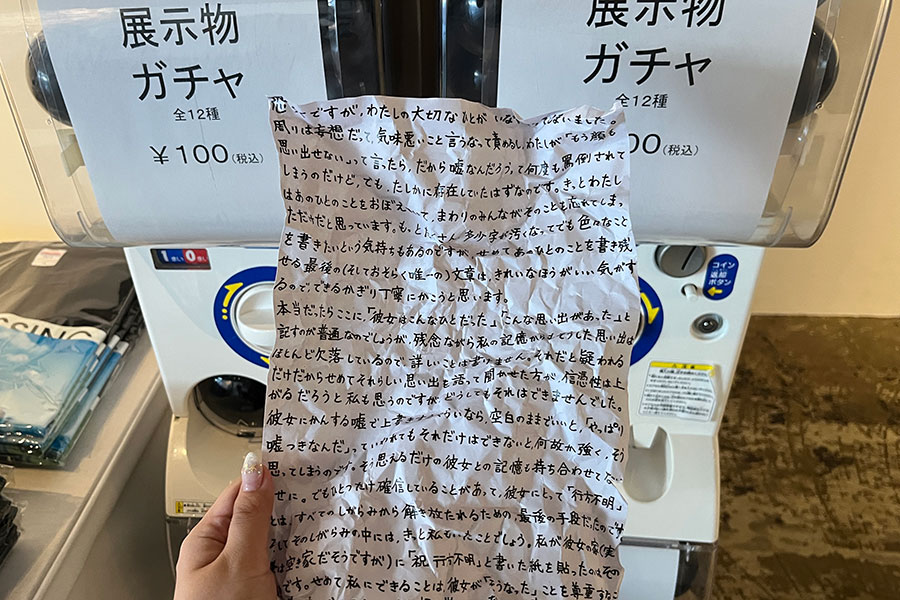 展示物
ガチャ
全12種
¥100(税込)
展示物
ガチャ
全12種
00(税込)
ですが、わたしの大切なひとがいな
周りは妄想だって、気味悪いこと言うなって責めるし、わたしが「もう顔も
思い出せない」って言ったら、だから嘘なんだろう、って何度も罵倒されて
しまうのだけど、でも、たしかに存在していたはずなのです。きっとわたし
はあのひとのことをおぼえ て、まわりのみんながそのことも忘れてしまっ
ただけだと思っています。もっとたくさん、多少字が汚くなってでも色んなこと
を書きたいという気持ちもあるのですが、せめてあのひとのことを書き残
せる最後の(そしておそらく唯一の)文章は、きれいなほうがいい気がす
るので、できるかぎり丁寧にかこうと思います。
本当だったらここに、「彼女はこんなひとだった」「こんな思い出があった」と
記すのが普通なのでしょうが、残念ながら私の記憶から した思い出は
ほとんど欠落しているので、詳しいことは ません。それだと疑われる
だけだからせめてそれらしい思い出を語って聞かせた方が、信憑性は上
がるだろうと私も思うのですが、どうしてもそれはできませんでした。
彼女にかんする嘘で上書 いうなら、空白のままでいいと、「やっぱり
嘘つきなんだ」っていわれてもそれだけはできないと何故か強く、そう
思ってしまうのです。そう思えるだけの彼女との記憶も持ち合わせてない
くせに。でもひとつだけ確信していることがあって、彼女にとって「行方不明」
とは、すべてのしがらみから解き放たれるための、最後の手段だったので
そしてそのしがらみの中には、きっと私もいたことでしょう。私が彼女の家(実
は空き家だそうですが)に「祝 行方不明」と書いた紙を貼ったのはその
です。せめて私にできることは、彼女が「そうなった」ことを尊重するこ
1
0
コイン
返却
ボタン
SSING